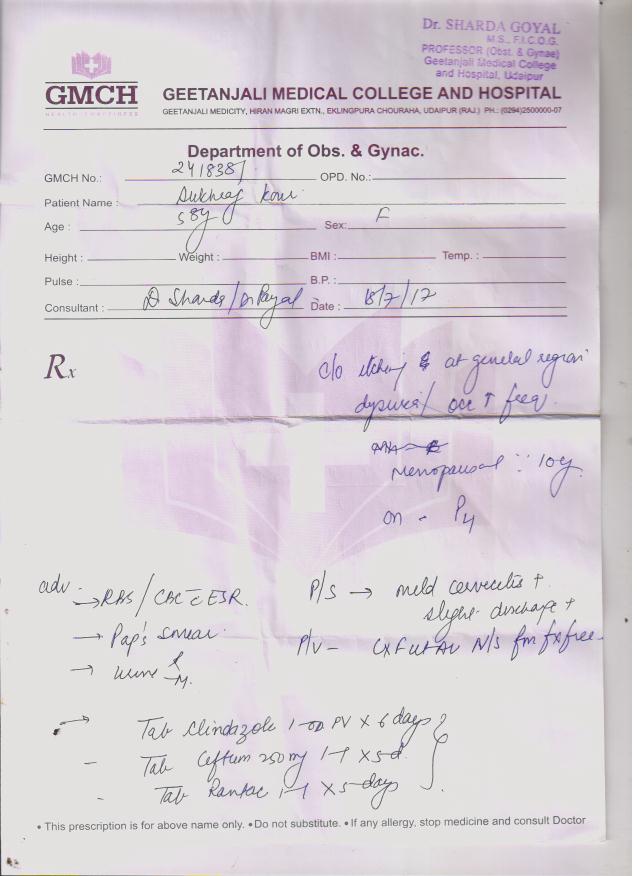 Dr. SHARDA GOYAL
M.S., F.I.C.O.G.
PROFESSOR (Obst. & Gynae)
Geetanjali Medical College
and Hospital, Udaipur
GMCH
GEETANJALI MEDICAL COLLEGE AND HOSPITAL
GEETANJALI MEDICITY, HIRAN MAGRI EXTN., EKLINGPURA CHOURAHA, UDAIPUR (RAJ.) PH.: (0294)2500000-07
Department of Obs. & Gynac.
GMCH No.: 241838 OPD. No.:
Patient Name : Kour
Age : 58y Sex: F
Height : Weight : BMI : Temp. :
Pulse : B.P. :
Consultant : D Sharda / Dr Payal Date : 18/7/17
Rx
c/o itching at genetal region
dysuria / occ ↑ freq.
Menopausal 10y
on - P4
adv. → RBS / CBC c̄ ESR.
→ Pap's smear.
→ Urine R/M.
P/S → mild cervicitis +
slight discharge +
P/V - CXF UtAV N/S fm fx free
→ Tab Clindazole 1 OD PV X 6 days
- Tab Ceftum 250mg 1-1 X 5 d.
- Tab Rantac 1-1 X 5 days
• This prescription is for above name only. • Do not substitute. • If any allergy, stop medicine and consult Doctor